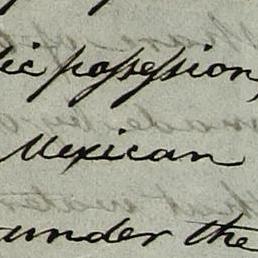 lic possession,
Mexican
under the